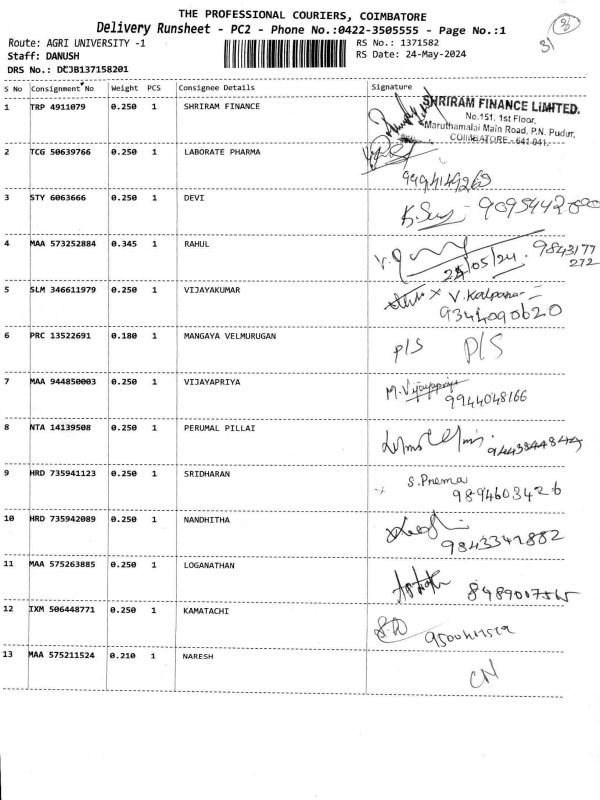 THE PROFESSIONAL COURIERS, COIMBATORE
Delivery Runsheet - PC2 - Phone No.:0422-3505555 - Page No.:1
Route: AGRI UNIVERSITY -1
RS No.: 1371582
Staff: DANUSH
RS Date: 24-May-2024
DRS No.: DCJB137158201
31
3
S No Consignment No Weight PCS Consignee Details Signature
1 TRP 4911079 0.250 1 SHRIRAM FINANCE
SHRIRAM FINANCE LIMITED.
No.151, 1st Floor,
Maruthamalai Main Road, P.N. Pudur,
COIMBATORE - 641 041.
2 TCG 50639766 0.250 1 LABORATE PHARMA
9994149269
3 STY 6063666 0.250 1 DEVI
4 MAA 573252884 0.345 1 RAHUL
9843177
272
/05/24.
5 SLM 346611979 0.250 1 VIJAYAKUMAR
x V. Kalpana
9344090620
6 PRC 13522691 0.180 1 MANGAYA VELMURUGAN P/S P/S
7 MAA 944850003 0.250 1 VIJAYAPRIYA M. Vijayapriya
9944048166
8 NTA 14139508 0.250 1 PERUMAL PILLAI
9 HRD 735941123 0.250 1 SRIDHARAN S. Prema
9894603426
10 HRD 735942089 0.250 1 NANDHITHA
9843341882
11 MAA 575263885 0.250 1 LOGANATHAN
12 IXM 506448771 0.250 1 KAMATACHI
13 MAA 575211524 0.210 1 NARESH CN